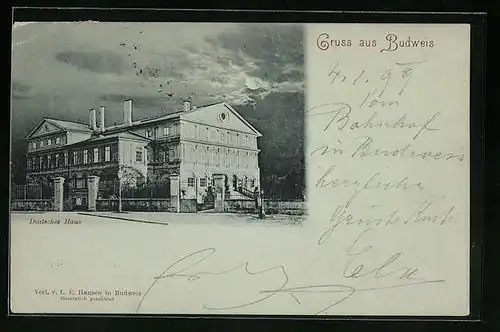 Gruss aus Budweis
4.1.99
Vom
Bahnhof
in Budweis
herzliche
Grüsse
Deutsches Haus
Verl. v. L. E. Hansen in Budweis
Gesetzlich geschützt